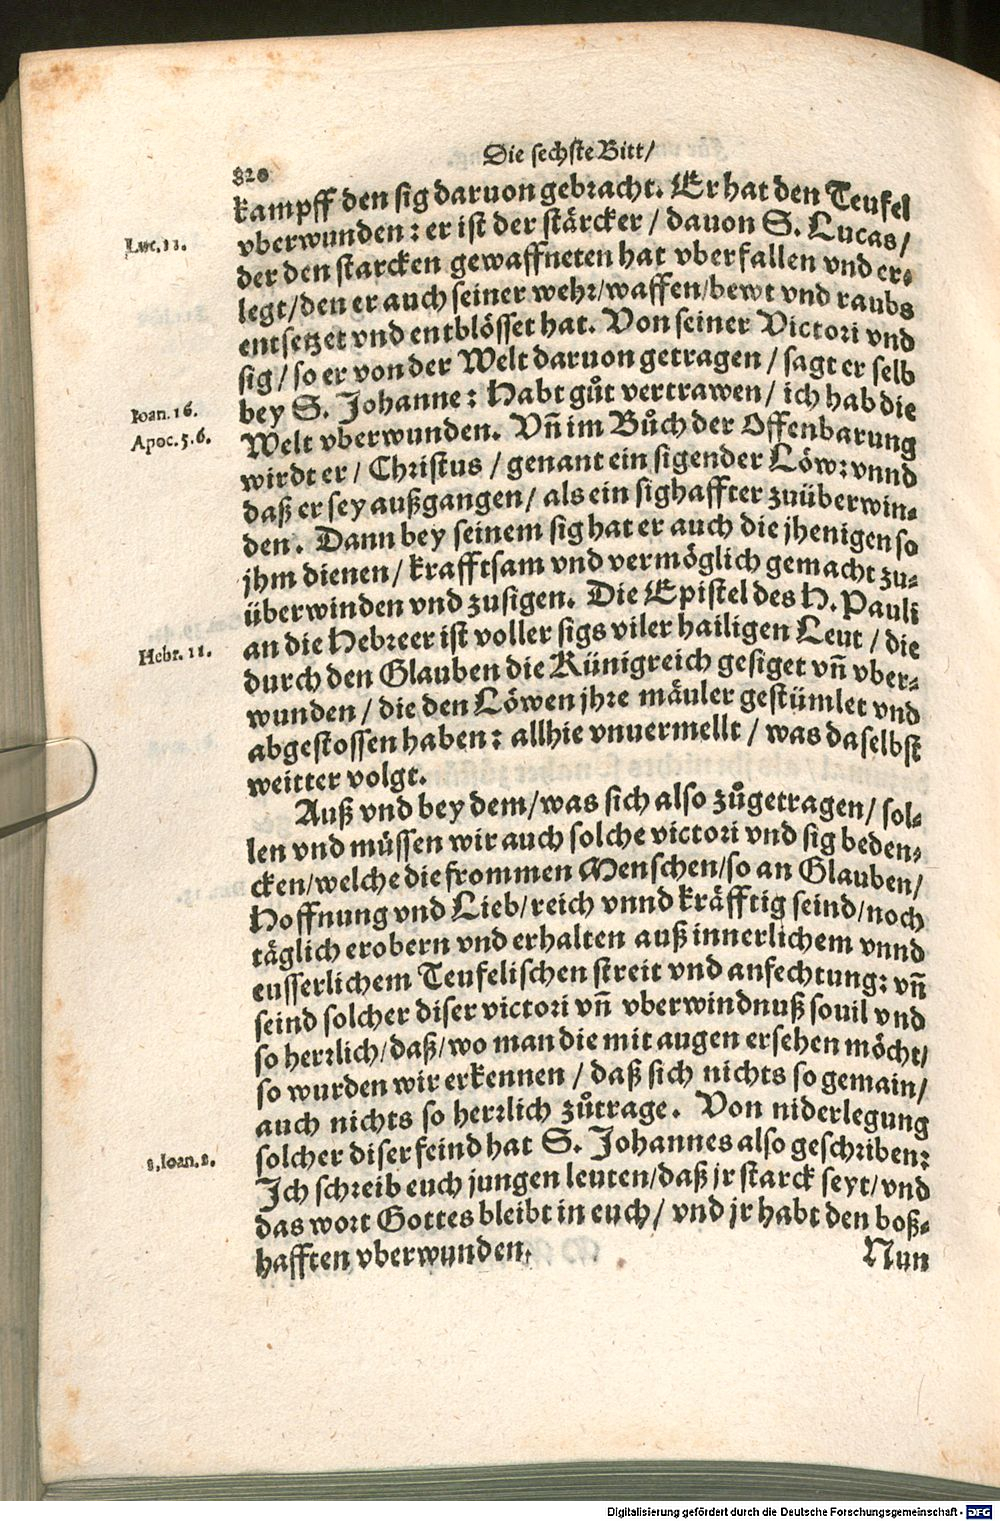 Die sechste Bitt/
820
kampff den sig daruon gebracht. Er hat den Teufel
vberwunden: er ist der stärcker / dauon S. Lucas/
Luc. 11.
der den starcken gewaffneten hat vberfallen vnd er-
legt/den er auch seiner wehr/waffen/bewt vnd raubs
entsetzet vnd entblösset hat. Von seiner Victori vnd
sig / so er von der Welt daruon getragen / sagt er selb
bey S. Johanne: Habt gůt vertrawen / ich hab die
Ioan. 16.
Welt vberwunden. Vñ im Bůch der Offenbarung
Apoc. 5. 6.
wirdt er / Christus / genant ein sigender Löw: vnnd
daß er sey außgangen / als ein sighaffter zuüberwin-
den. Dann bey seinem sig hat er auch die jhenigen so
jhm dienen / krafftsam vnd vermöglich gemacht zu-
überwinden vnd zusigen. Die Epistel des H. Pauli
an die Hebreer ist voller sigs viler hailigen Leut / die
Hebr. 11.
durch den Glauben die Künigreich gesiget vñ vber-
wunden / die den Löwen jhre mäuler gestümlet vnd
abgestossen haben: allhie vnuermellt / was daselbst
weitter volgt.
Auß vnd bey dem/was sich also zůgetragen / sol-
len vnd müssen wir auch solche victori vnd sig beden-
cken/welche die frommen Menschen/so an Glauben/
Hoffnung vnd Lieb/reich vnnd kräfftig seind/noch
täglich erobern vnd erhalten auß innerlichem vnnd
eusserlichem Teufelischen streit vnd anfechtung: vñ
seind solcher diser victori vñ vberwindnuß souil vnd
so herrlich/daß/wo man die mit augen ersehen möcht/
so wurden wir erkennen / daß sich nichts so gemain/
auch nichts so herrlich zůtrage. Von niderlegung
solcher diser feind hat S. Johannes also geschriben:
Ioan. 2.
Ich schreib euch jungen leuten/daß jr starck seyt/vnd
das wort Gottes bleibt in euch / vnd jr habt den boß-
hafften vberwunden.
Nun
Digitalisierung gefördert durch die Deutsche Forschungsgemeinschaft - DFG